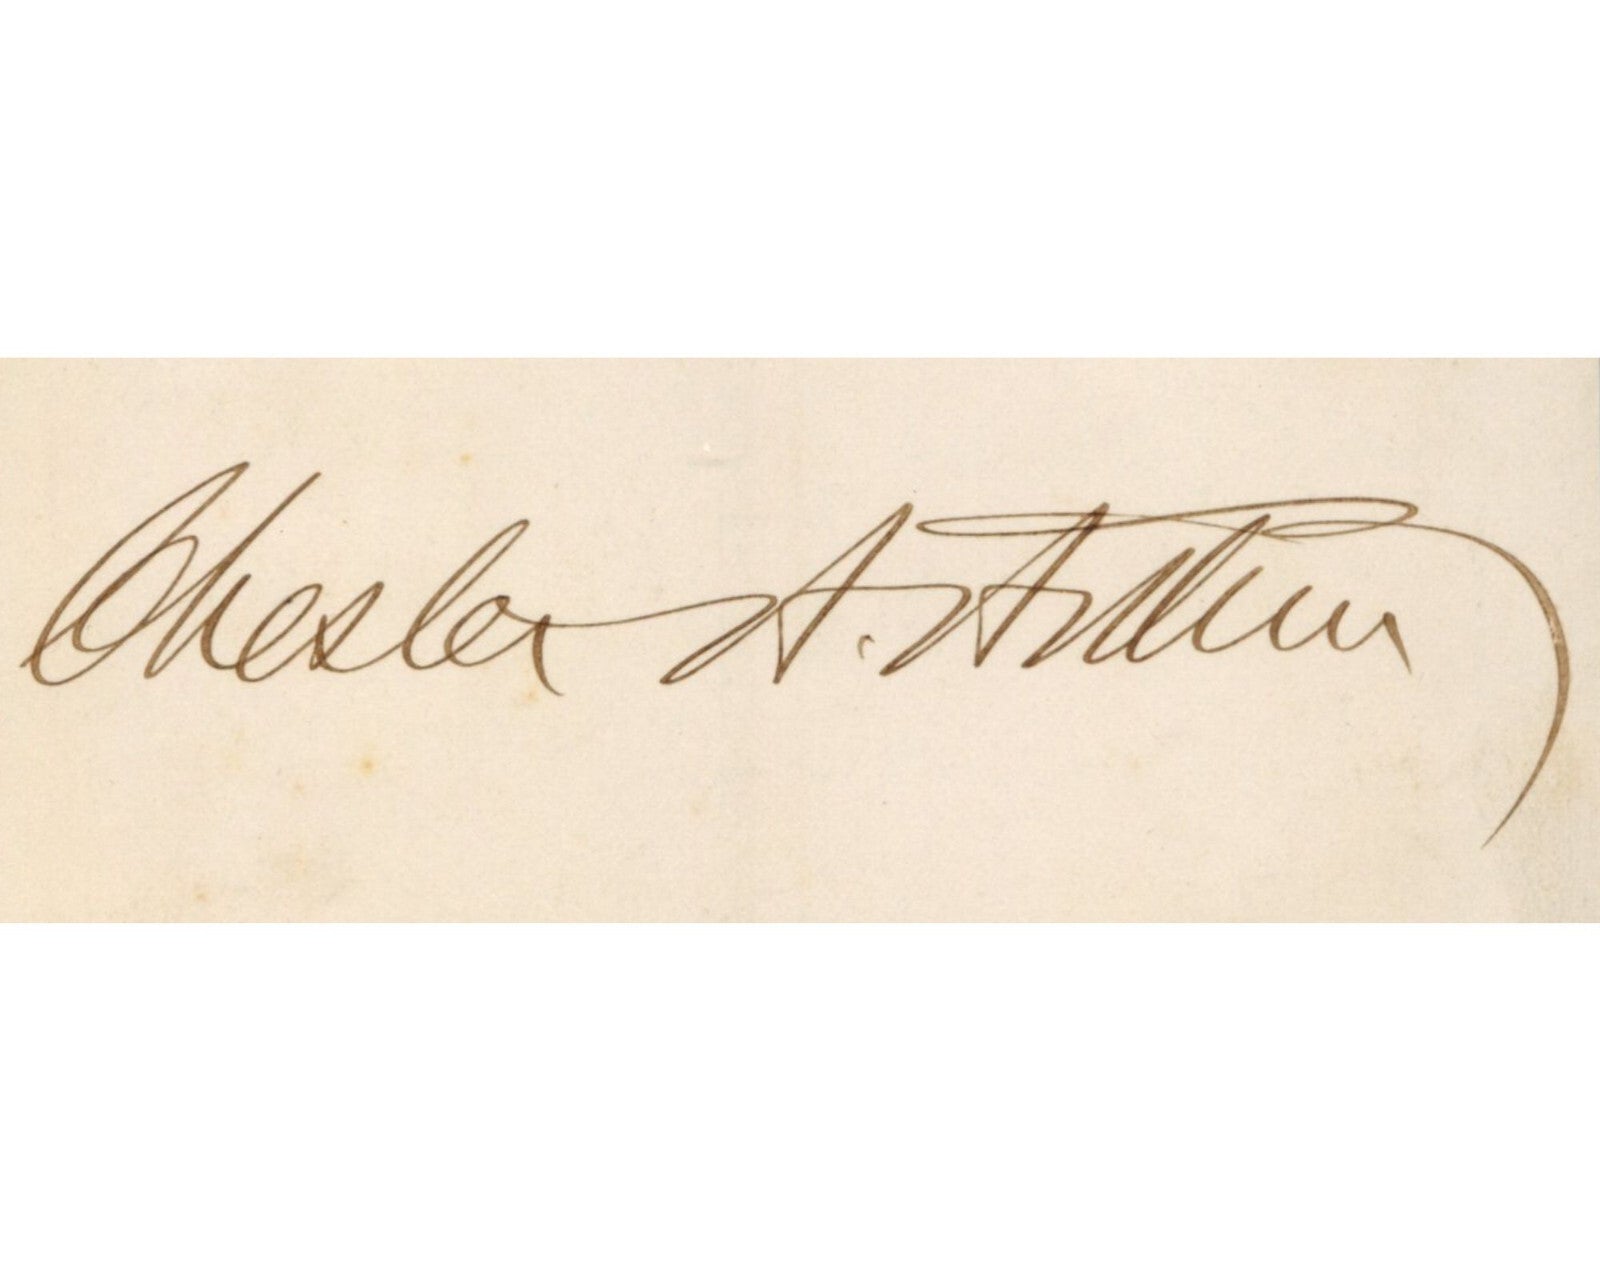 Chester A. Arthur